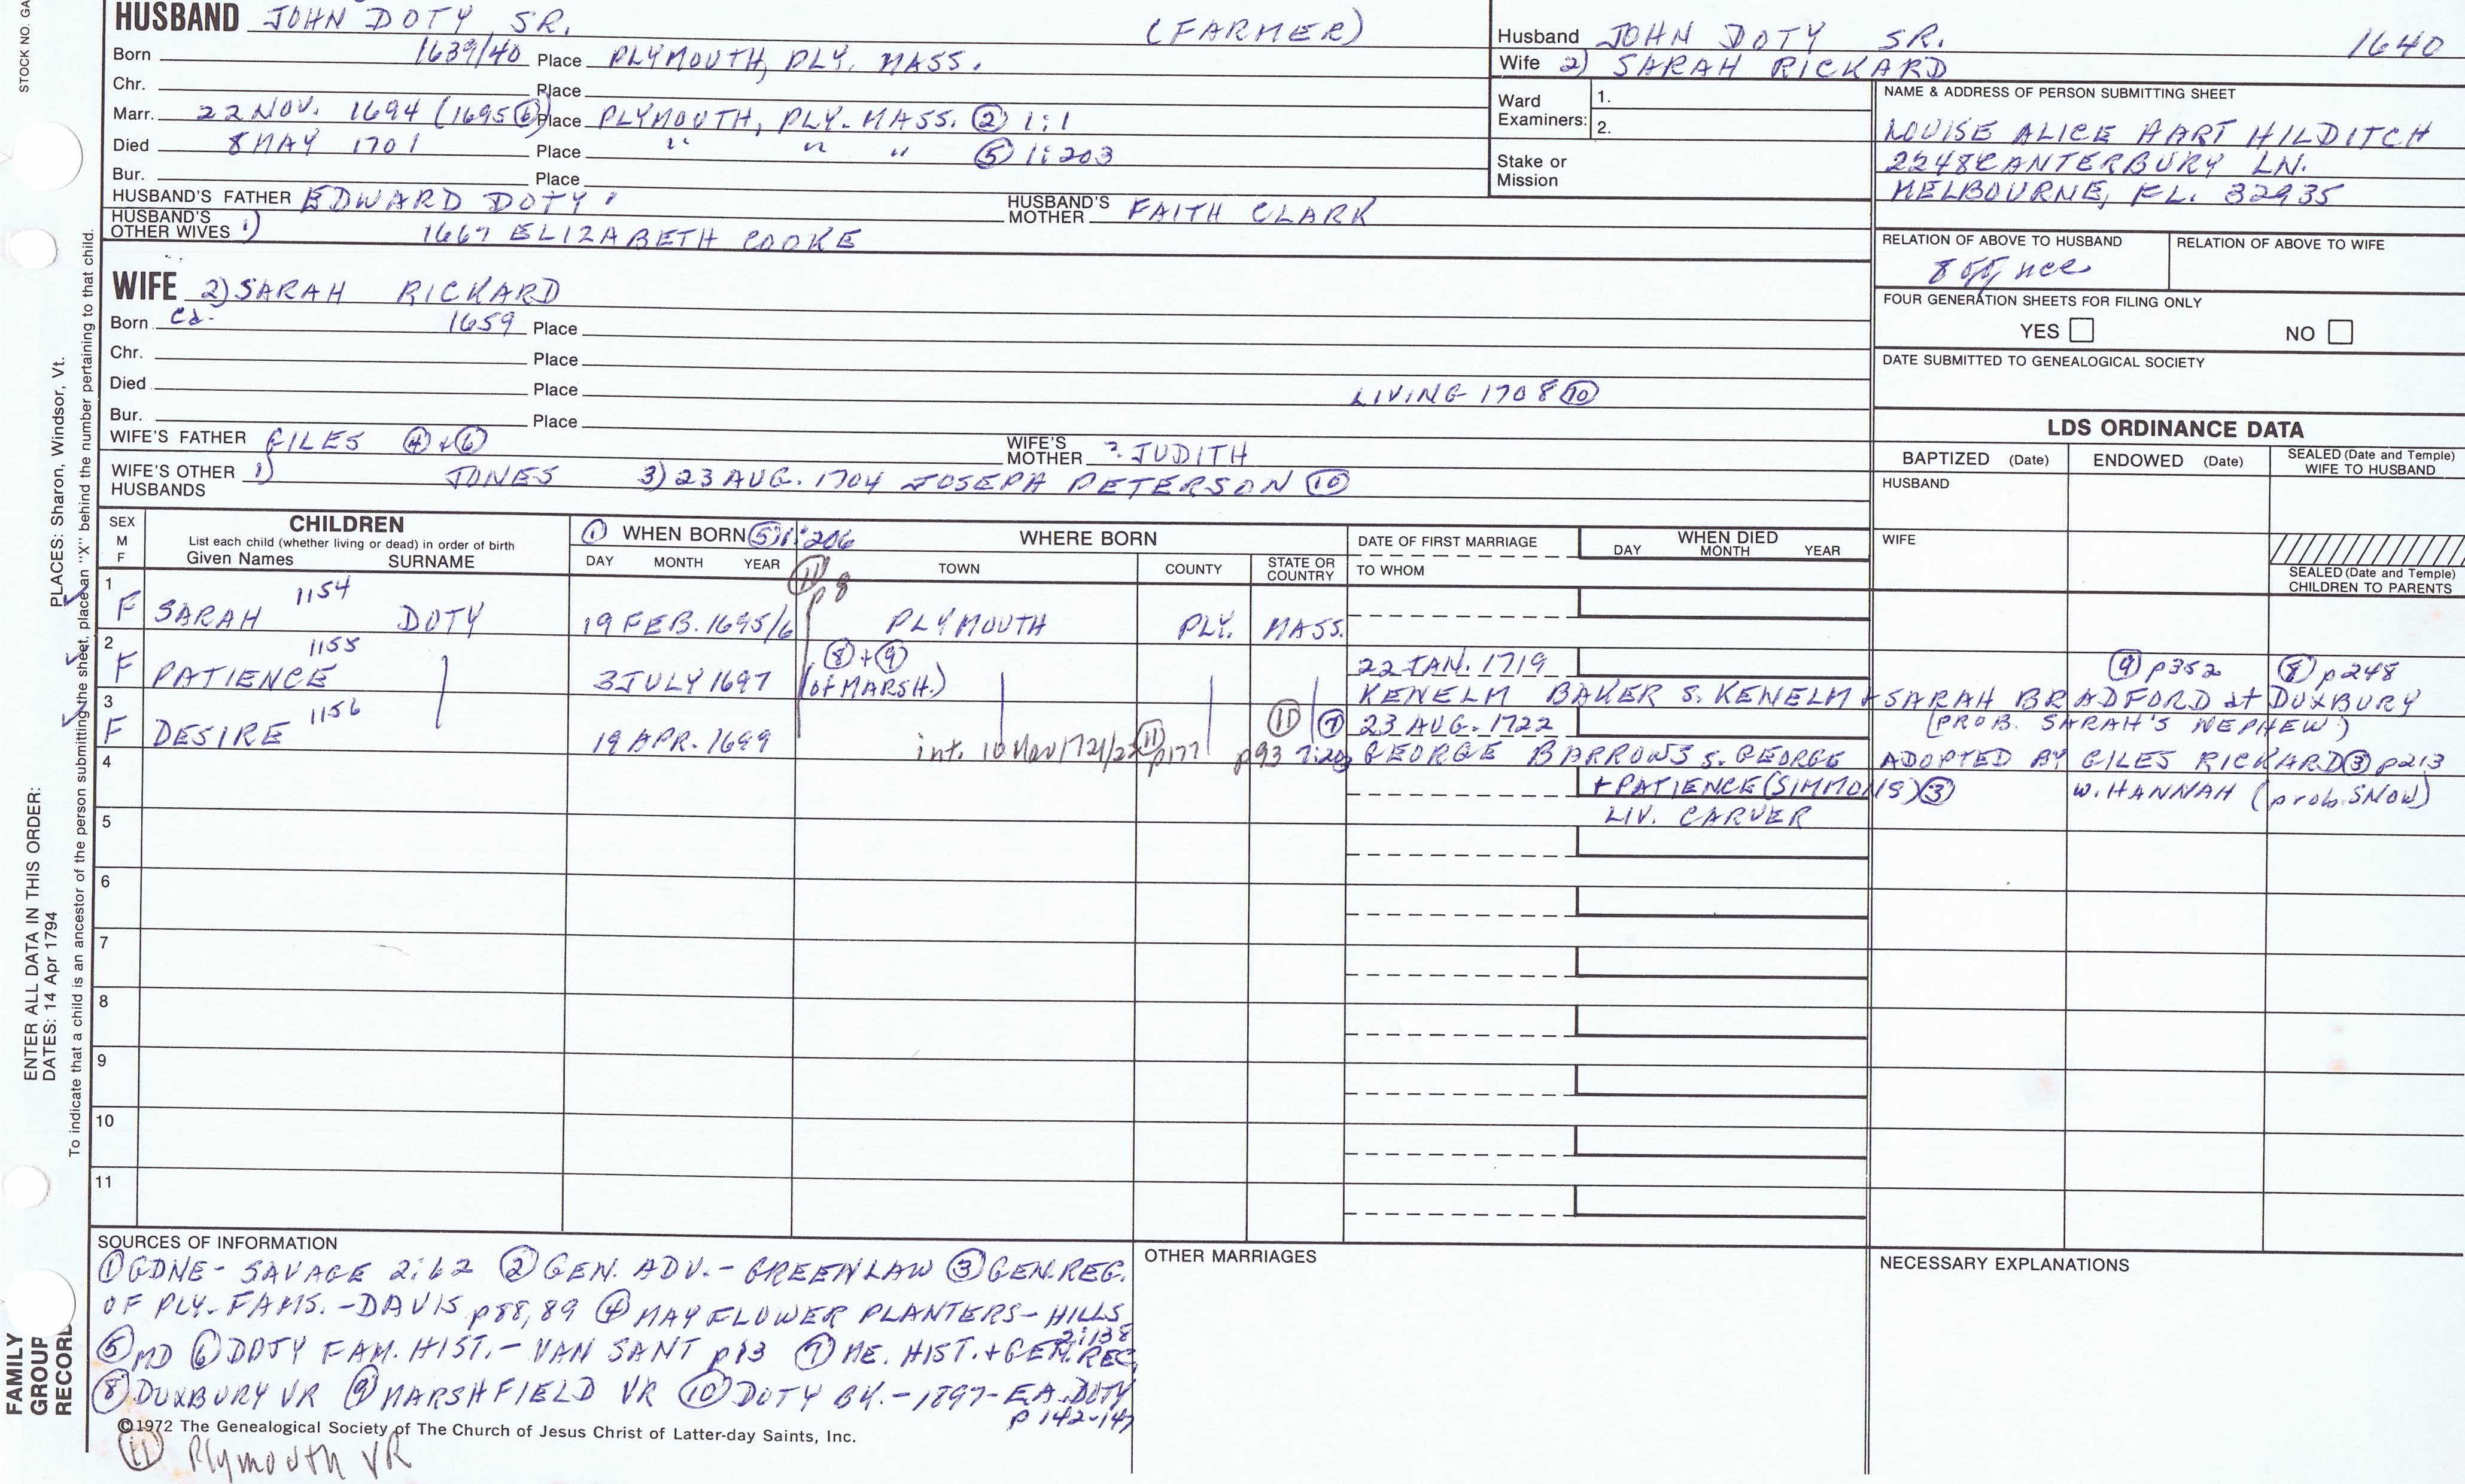 STOCK NO. GA
HUSBAND JOHN DOTY SR. (FARMER)
Born 1639/40 Place PLYMOUTH, PLY. MASS.
Chr. Place
Marr. 22 NOV. 1694 (1695 ⑥) Place PLYMOUTH, PLY. MASS. ② 1:1
Died 8 MAY 1701 Place " " " ⑤ 1:203
Bur. Place
HUSBAND'S FATHER EDWARD DOTY HUSBAND'S MOTHER FAITH CLARK
HUSBAND'S OTHER WIVES 1) 1667 ELIZABETH COOKE
WIFE 2) SARAH RICKARD
Born ca. 1659 Place
Chr. Place
Died Place LIVING 1708 ⑩
Bur. Place
WIFE'S FATHER GILES ④ + ⑥ WIFE'S MOTHER ? JUDITH
WIFE'S OTHER HUSBANDS 1) JONES 3) 23 AUG. 1704 JOSEPH PETERSON ⑩
Husband JOHN DOTY SR. 1640
Wife 2) SARAH RICKARD
Ward Examiners: 1.
2.
Stake or Mission
NAME & ADDRESS OF PERSON SUBMITTING SHEET
LOUISE ALICE HART HILDITCH
2248 CANTERBURY LN.
MELBOURNE, FL. 32935
RELATION OF ABOVE TO HUSBAND RELATION OF ABOVE TO WIFE
FOUR GENERATION SHEETS FOR FILING ONLY
YES NO
DATE SUBMITTED TO GENEALOGICAL SOCIETY
LDS ORDINANCE DATA
BAPTIZED (Date) ENDOWED (Date) SEALED (Date and Temple) WIFE TO HUSBAND
HUSBAND
WIFE
SEALED (Date and Temple) CHILDREN TO PARENTS
SEX M F
CHILDREN
List each child (whether living or dead) in order of birth
Given Names SURNAME
① WHEN BORN ⑤ 1:206
DAY MONTH YEAR
⑪ p8
WHERE BORN
TOWN COUNTY STATE OR COUNTRY
DATE OF FIRST MARRIAGE
TO WHOM
WHEN DIED
DAY MONTH YEAR
1 F SARAH 1154 DOTY 19 FEB. 1695/6 PLYMOUTH PLY. MASS.
2 F PATIENCE 1155 3 JULY 1697 ⑧ + ⑨ (of MARSH.) 22 JAN. 1719 ⑨ p352 ⑧ p248
KENELM BAKER S. KENELM + SARAH BRADFORD at DUXBURY
3 F DESIRE 1156 19 APR. 1699 ⑪ ⑦ 23 AUG. 1722 (PROB. SARAH'S NEPHEW)
int. 10 Mar 1721/22 ⑪ p177 p93 GEORGE BARROWS S. GEORGE ADOPTED BY GILES RICKARD ③ p213
4 + PATIENCE (SIMMONS) ③ W. HANNAH (prob. SNOW)
LIV. CARVER
5
6
7
8
9
10
11
SOURCES OF INFORMATION
① GDNE - SAVAGE 2:62 ② GEN. ADV. - GREENLAW ③ GEN. REG.
OF PLY. FAMS. - DAVIS p88,89 ④ MAYFLOWER PLANTERS - HILLS
2:138
⑤ MD ⑥ DOTY FAM. HIST. - VAN SANT p13 ⑦ ME. HIST. + GEN. REC.
⑧ DUXBURY VR ⑨ MARSHFIELD VR ⑩ DOTY BK. - 1897 - E.A. DOTY
p 142-147
©1972 The Genealogical Society of The Church of Jesus Christ of Latter-day Saints, Inc.
⑪ Plymouth VR
OTHER MARRIAGES
NECESSARY EXPLANATIONS
FAMILY GROUP RECORD
ENTER ALL DATA IN THIS ORDER:
DATES: 14 Apr 1794
PLACES: Sharon, Windsor, Vt.
To indicate that a child is an ancestor of the person submitting the sheet, place an "X" behind the number pertaining to that child.